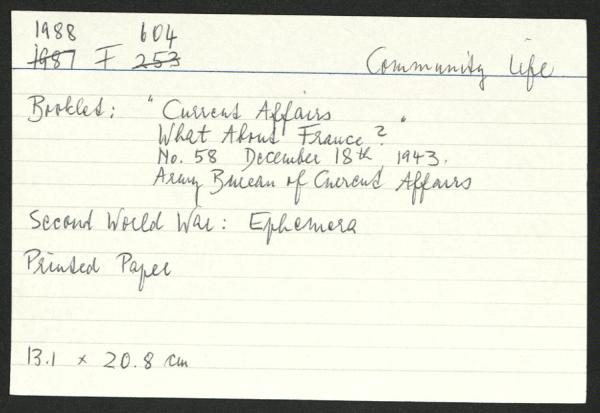 1988 604
1987 F 253
Community Life
Booklet: "Current Affairs
What About France?"
No. 58 December 18th, 1943.
Army Bureau of Current Affairs
Second World War: Ephemera
Printed Paper
13.1 x 20.8 cm